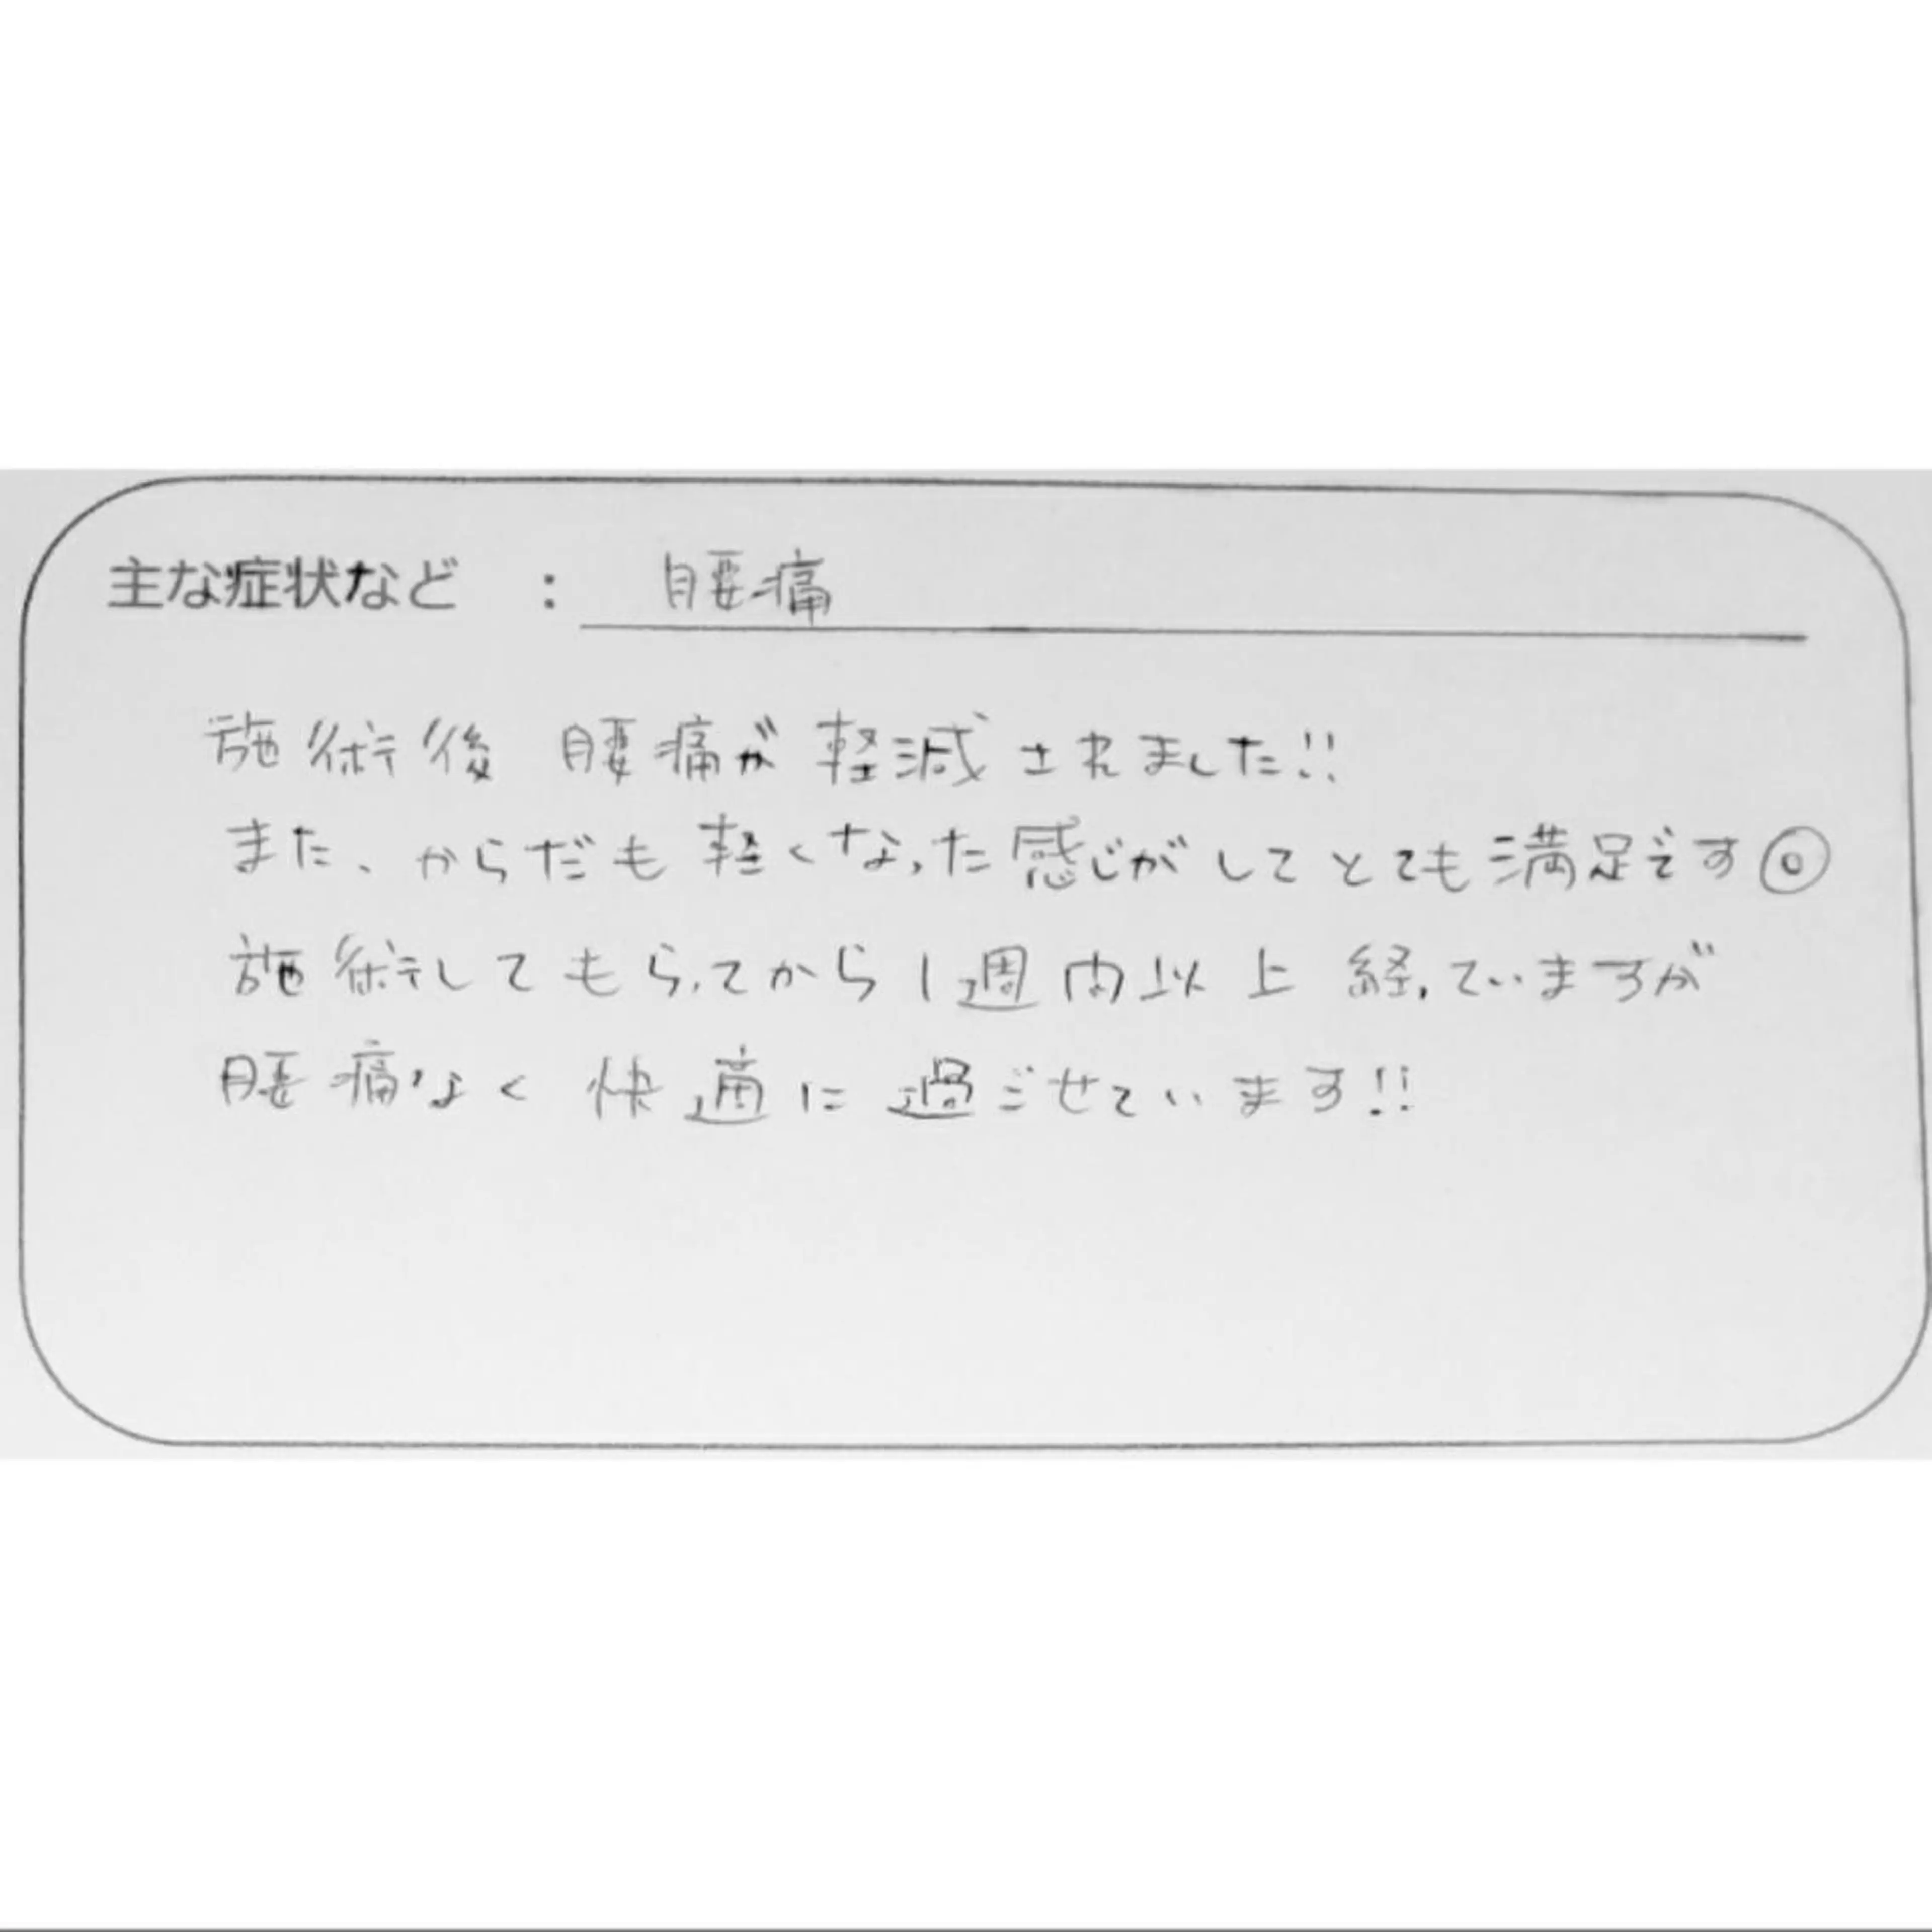 主な症状など : 腰痛
施術後 腰痛が軽減されました!!
また、からだも軽くなった感じがしてとても満足です◎
施術してもらってから1週間以上 経っていますが
腰痛なく快適に過ごせています!!